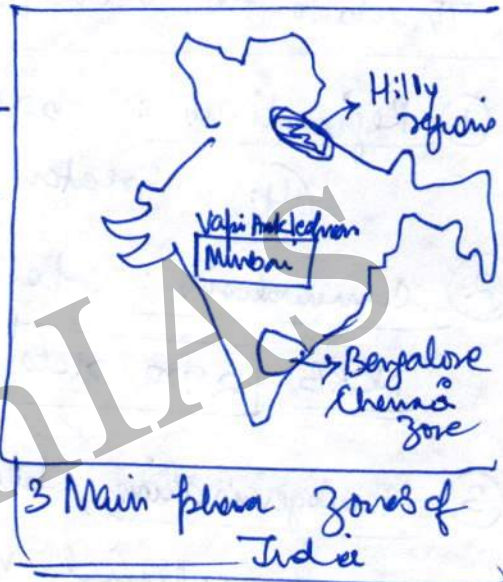 Hilly
regions
Vapi Ankleshwar
Mumbai
Bengalore
Chennai
Zone
3 Main pharma Zones of
India
IAS